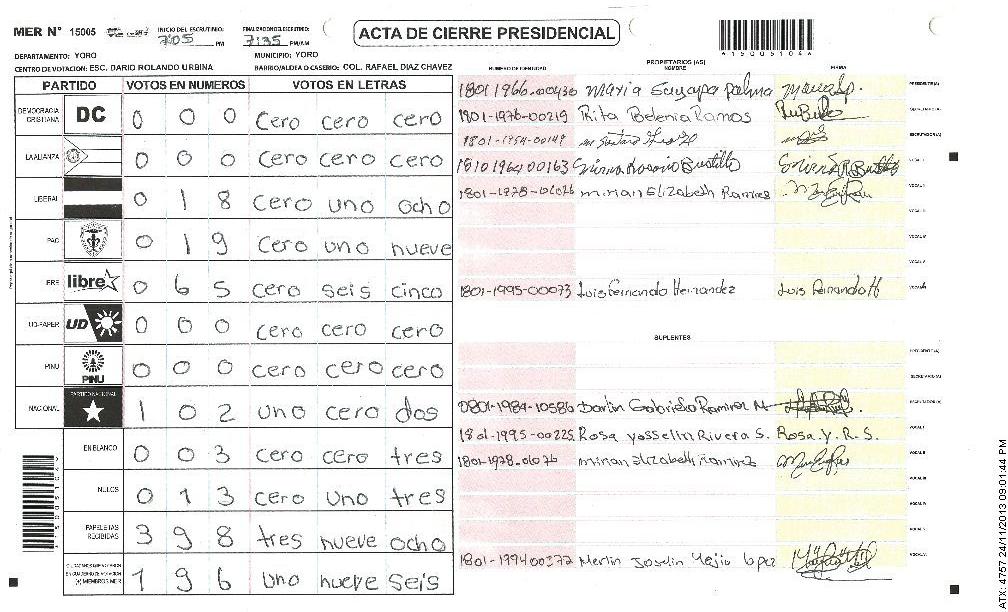 MER N° 15005
INICIO DEL ESCRUTINIO: 7:05 PM
7:35 PM/AM
ACTA DE CIERRE PRESIDENCIAL
A150051044
DEPARTAMENTO: YORO
MUNICIPIO: YORO
CENTRO DE VOTACION: ESC. DARIO ROLANDO URBINA
BARRIO/ALDEA O CASERIO: COL. RAFAEL DIAZ CHAVEZ
PARTIDO VOTOS EN NUMEROS VOTOS EN LETRAS
DEMOCRACIA CRISTIANA DC 0 0 0 cero cero cero
LA ALIANZA 0 0 0 cero cero cero
LIBERAL 0 1 8 cero uno ocho
PAC 0 1 9 cero uno nueve
libre 0 6 5 cero seis cinco
UD-FAPER UD 0 0 0 cero cero cero
PINU PINU 0 0 0 cero cero cero
NACIONAL PARTIDO NACIONAL 1 0 2 uno cero dos
EN BLANCO 0 0 3 cero cero tres
NULOS 0 1 3 cero uno tres
PAPELETAS RECIBIDAS 3 9 8 tres nueve ocho
(+) MIEMBROS MER 1 9 6 uno nueve seis
NUMERO DE IDENTIDAD
PROPIETARIOS (AS)
NOMBRE
FIRMA
1801 1966-00430 Maria Suyapa Palma
1901-1976-00219 Rita Belenia Ramos
1801-1954-00149
1810 1964 00163 Rosario Bustillo
1801-1978-01026 mirian Elizabeth Ramirez
1801-1995-00073 Luis Fernando Hernandez Luis Fernando H
SUPLENTES
0801-1984-10586 Darlin Gabriela Ramirez M
1801-1995-00225 Rosa Yosselin Rivera S. Rosa. Y. R. S.
1801-1978-01076 mirian Elizabeth Ramirez
1801-1994 00372 Merlin Joselin Mejia Lopez
ATX: 4757 24/11/2013 09:01:44 PM